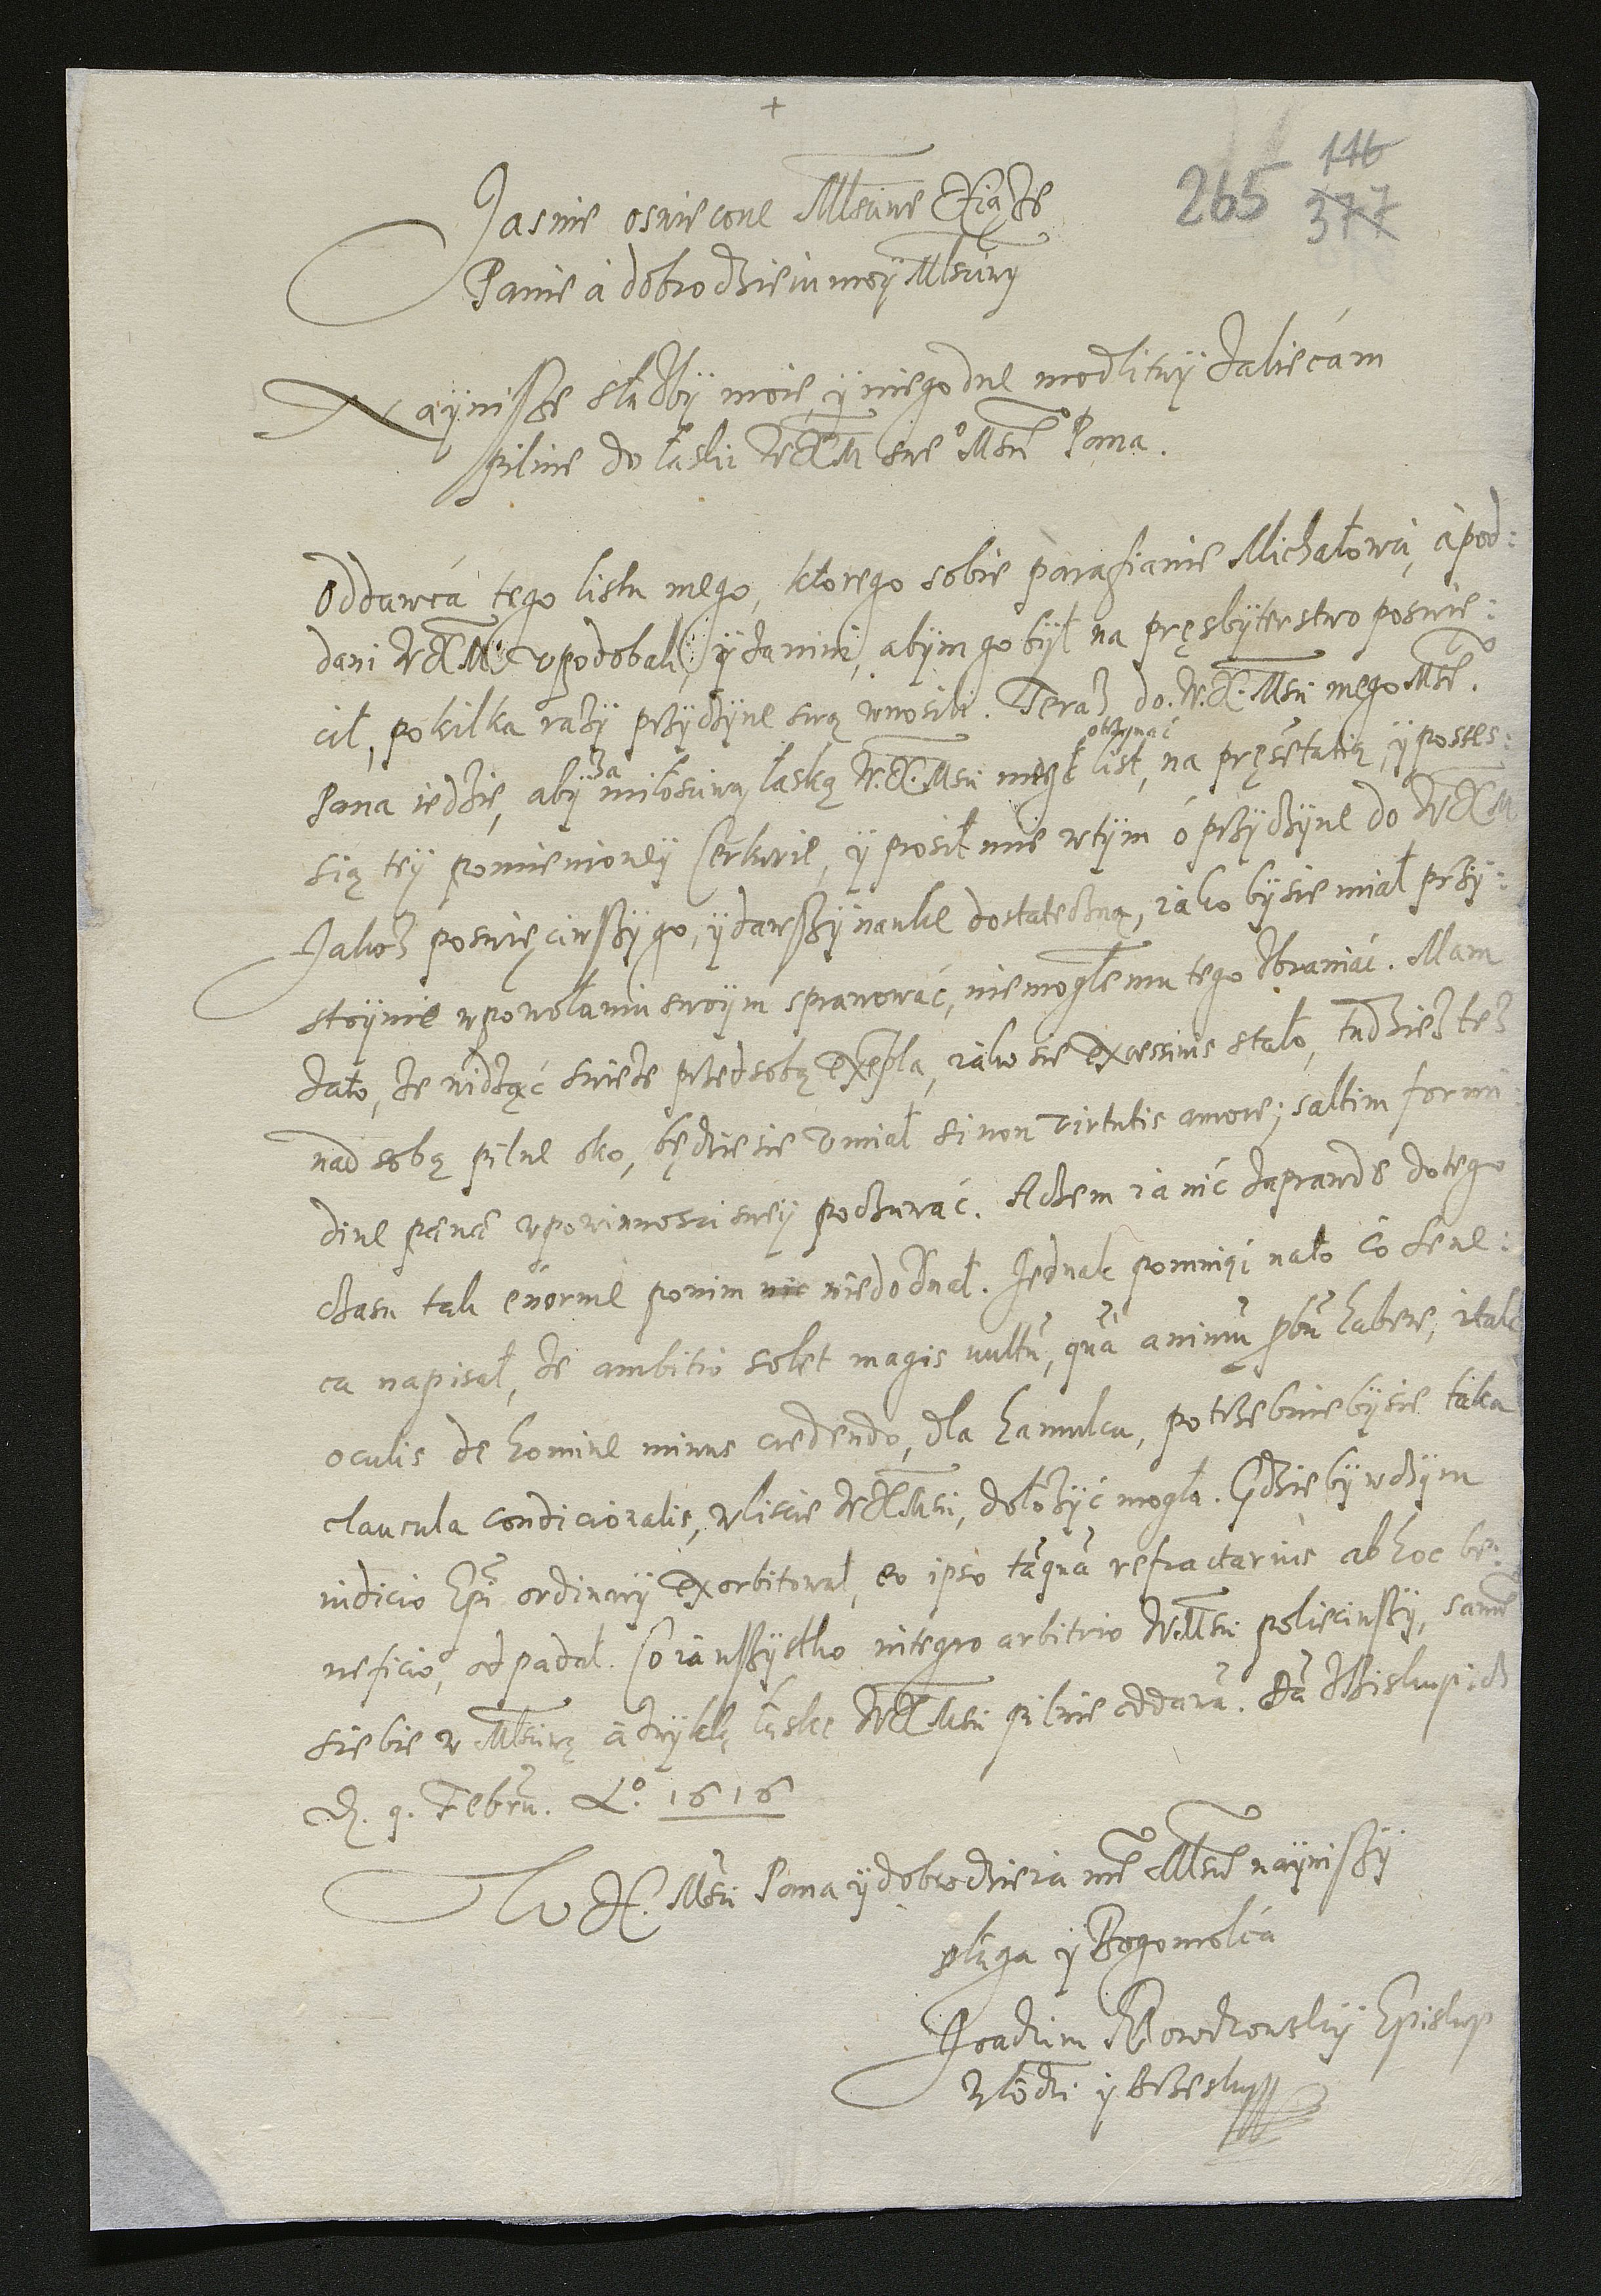 +
265 116
377
Jasnie oswiecone Mlsciwe Xiąże
Panie á dobrodzieiu moÿ Mlsciwy
Naÿnisze służbÿ moie, ÿ niegodne modlitwÿ zaliecám
pilnie do łaski WXM swe͞o Msc͞e Pana.
Oddawcá tego listu mego, ktorego sobie parafianie Michałowsci, à pod:
dani WXM vpodobali, ÿ zanim, abÿm go bÿł na pręsbÿterstwo poswie:
cił, po kilka razÿ przÿczÿne swą wnosili. Teraz do. W.X.Msci mego Msc͞e.
Pana iedzie, abÿ za miłosciwą łaską W.X.Msci mego otrzÿmać list, na pręse͞tatią, ÿ posses:
sią teÿ pomienioneÿ Cerkwie, ÿ prosił mie wtÿm ó przÿczÿne do WXM
Jakoż poswięciwszÿ go, ÿ dawszÿ nauke dostateczną, iáko bÿ sie miał przÿ:
stoÿnie w powołaniu swoÿm sprawowáć, niemogłemu tego zbraniáć. Mam
zato, że widząć swieże przed sobą exe͞pla, iáko sie excessiuis stało, tudzież też
nad sobą pilne oko, będzie sie vmiał si non virtutis amore; saltim formi
dine pænæ w powinnosci sweÿ poczuwáć. Aczem iá nić zaprawde dotego
czasu tak enorme ponim nic niedoznał. Jednak pomniąć náto co Sene:
ca napisał, że ambitio solet magis uultu͞, qua͞ animu͞ pbu͞ habere, itak
oculis de homine minus credendo, dla hamulcu, potrzebnie bÿ sie táka
clausula condicionalis, w liscie WXMsci, dołożÿć mogła. Gdzie bÿ w czÿm
iudicio Ep͞i ordinarÿ exorbitował, eo ipso ta͞qua͞ refractarius ab hoc be:
neficio, odpadał. Co iá wszÿstko integro arbitrio W.Msci poliéciwszÿ, same͞
siebie w Mlsciwą á zwÿkłą łaske WXMsci pilnie oddawa͞.
D. 9. Febru͞. Ao. 1616
W X. Msci Pana ÿ dobrodzieia me͞ Mlsce͞ naÿniszÿ
sługa ÿ Bogomolcá
Joachim Morochowskÿ Episkup
Włodzi ÿ Brzeskÿ